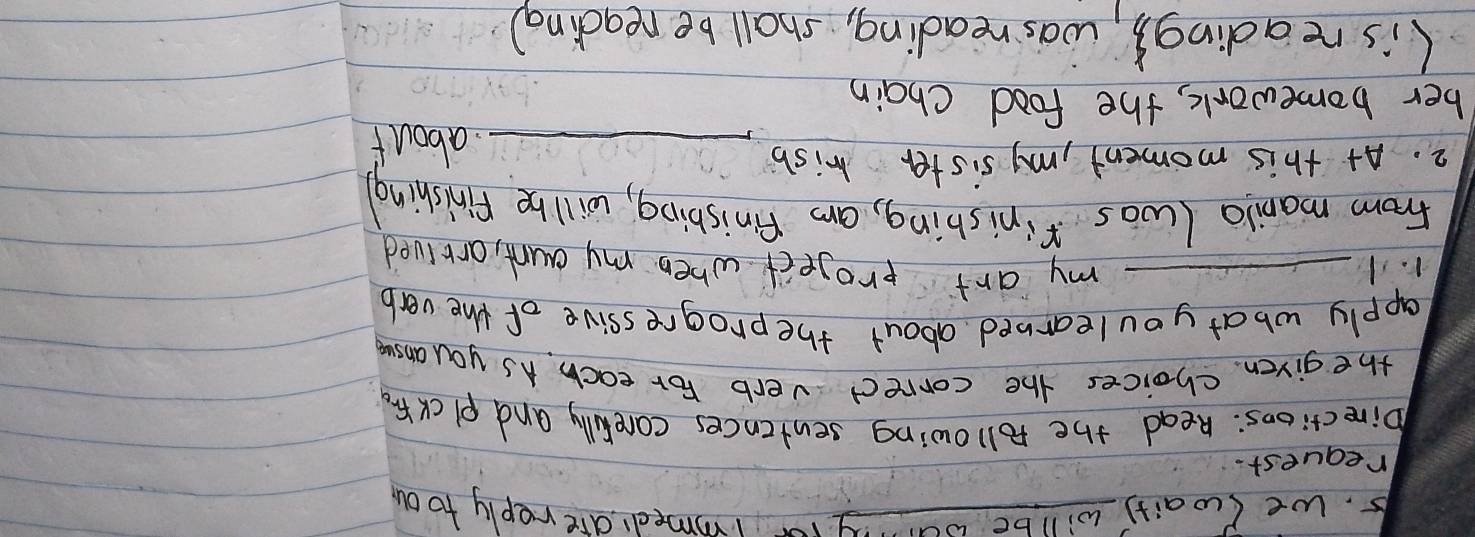 5. We (wait) will be waiting for immediate reply to our
request.
Directions: Read the following sentences carefully and pick from
the given choices the correct verb for each. As you answer
apply what you learned about the progressive of the verb
1. I ________ my art project when my aunt, arrived
from manila (was finishing, am finishing, will be finishing)
2. At this moment, my sister trish ________. about
her homework, the food chain
(is reading, was reading, shall be reading)